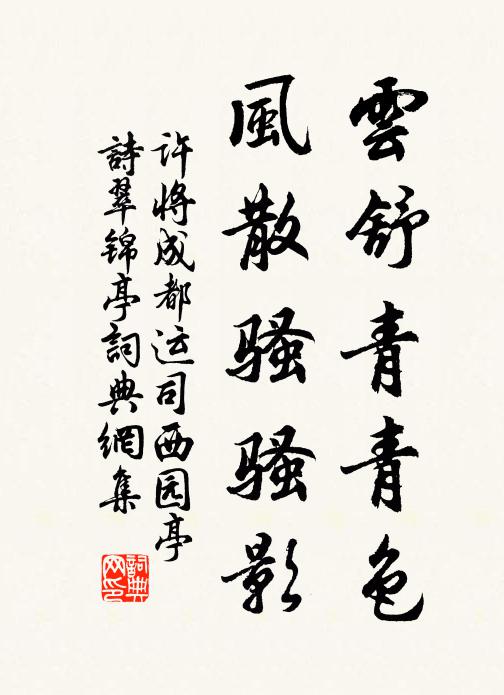 雲舒青青色
風散骚骚影
许将成都运司西园亭
詩翠锦亭詞典網集
詞典
网印